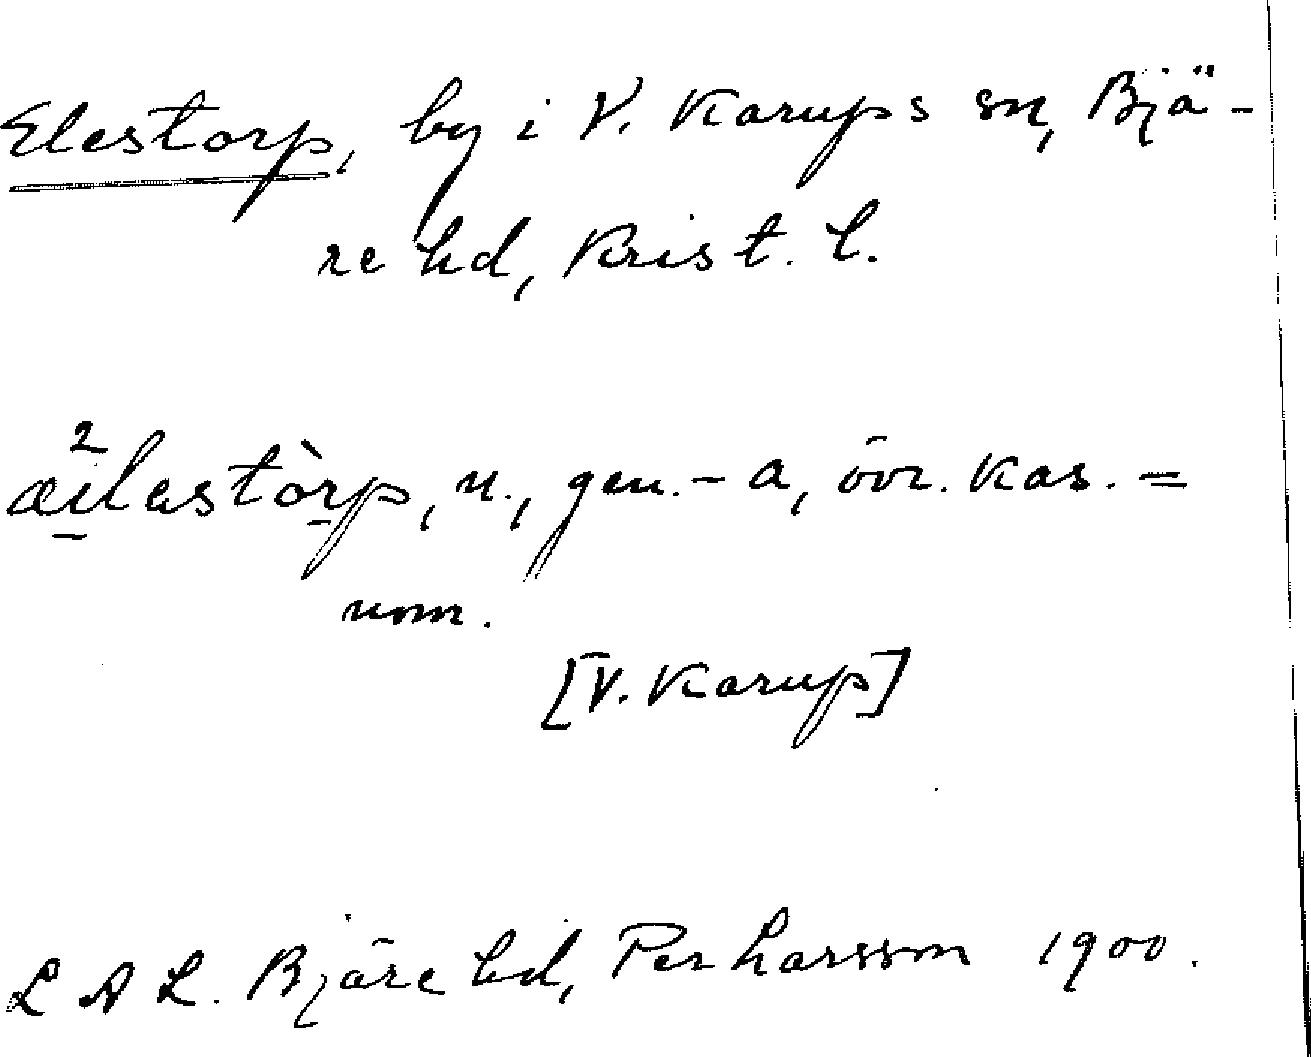 Elestorp, by i V. Karups sn, Bjä-
re hd, Krist. l.
æ²i̯lastòrp, n., gen. -a, övr. kas. =
nom.
[V. Karup]
L A L. Bjäre hd, Per Larsson 1900.